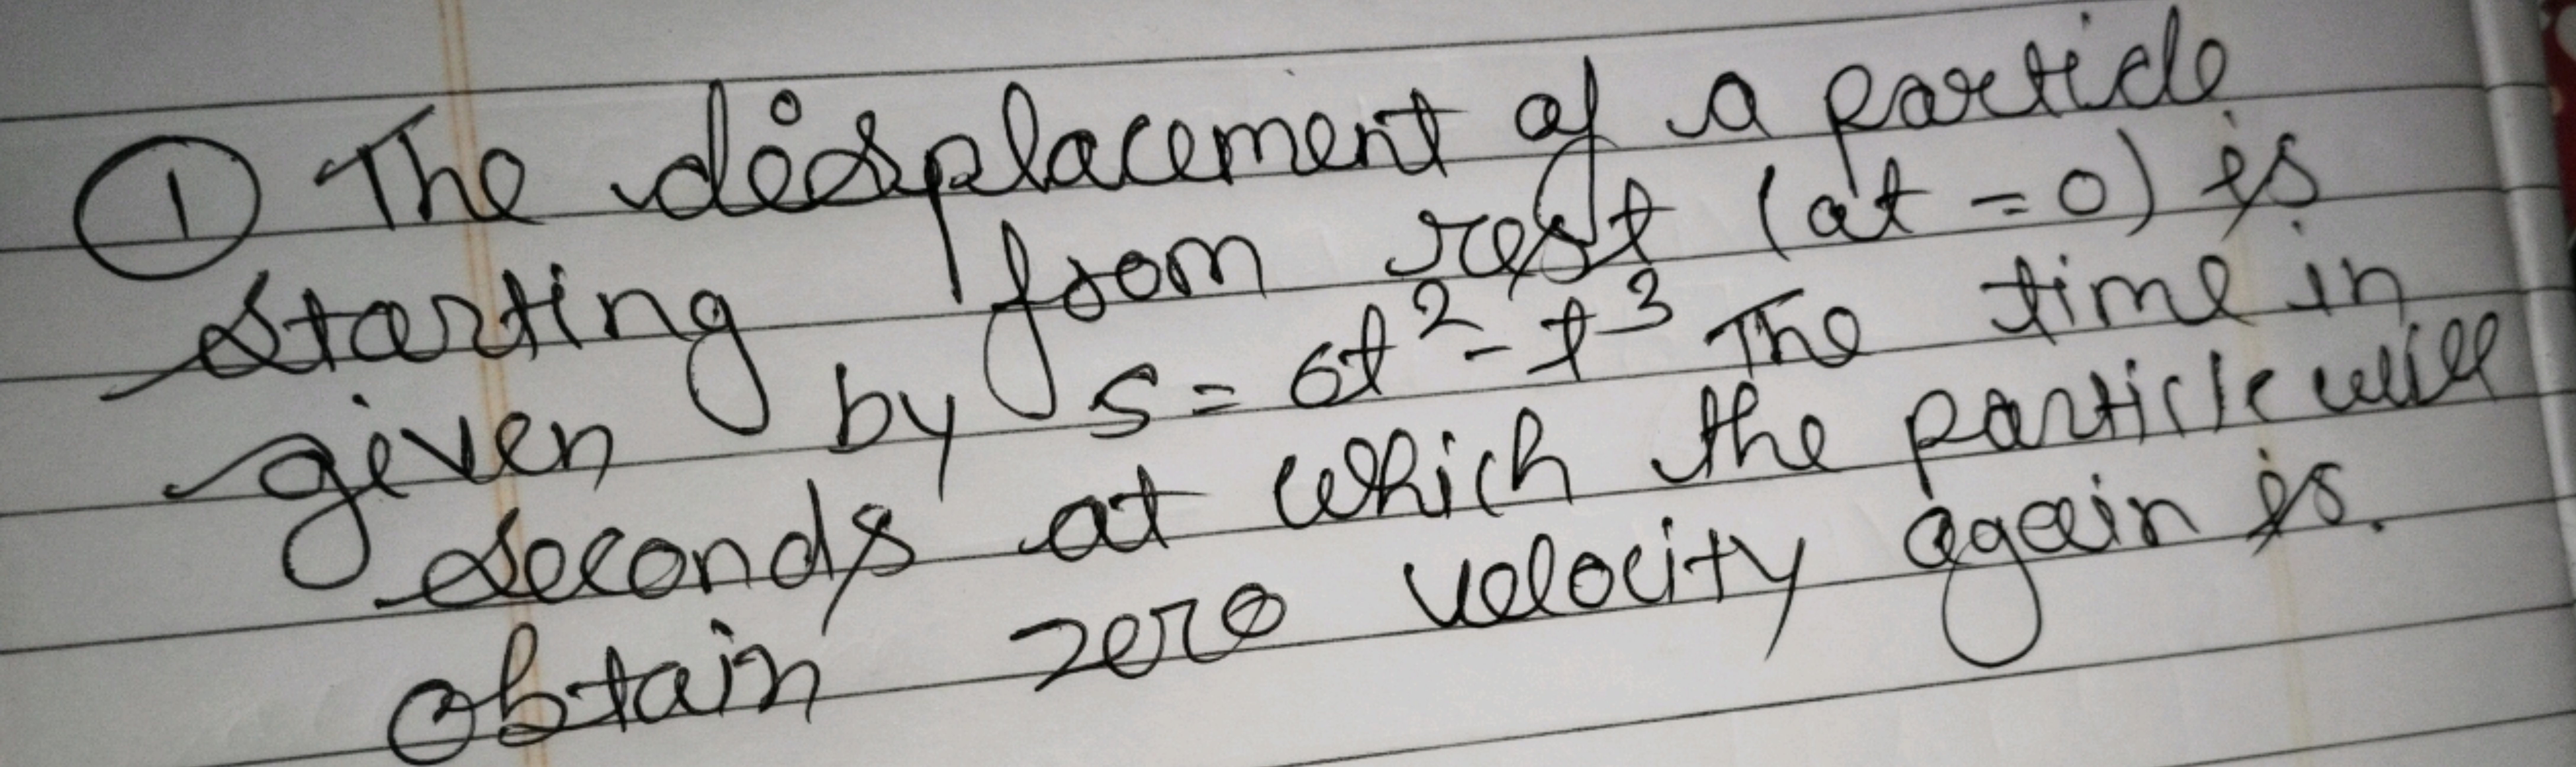 ① The displacement of a particle
starting from rest (at = 0) is
given by s = 6t² - t³ The time in
seconds at which the particle will
obtain zero velocity again is.